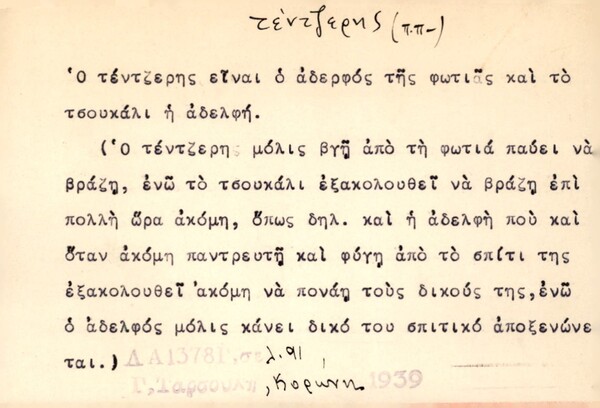 τέντζερης (π.π-)
Ὁ τέντζερης εἶναι ὁ ἀδερφός τῆς φωτιᾶς καὶ τὸ
τσουκάλι ἡ ἀδελφή.
(Ὁ τέντζερης μόλις βγῇ ἀπὸ τὴ φωτιά παύει νὰ
βράζῃ, ἐνῶ τὸ τσουκάλι ἐξακολουθεῖ νὰ βράζῃ ἐπὶ
πολλὴ ὥρα ἀκόμη, ὅπως δηλ. καὶ ἡ ἀδελφὴ ποὺ καὶ
ὅταν ἀκόμη παντρευτῇ καὶ φύγῃ ἀπὸ τὸ σπίτι της
ἐξακολουθεῖ ἀκόμη νὰ πονάῃ τοὺς δικούς της,ἐνῶ
ὁ ἀδελφός μόλις κάνει δικό του σπιτικό ἀποξενώνε
ται.) ΔΑ1378Γ, σελ. 91
Γ. Ταρσούλη, Κορώνη 1939